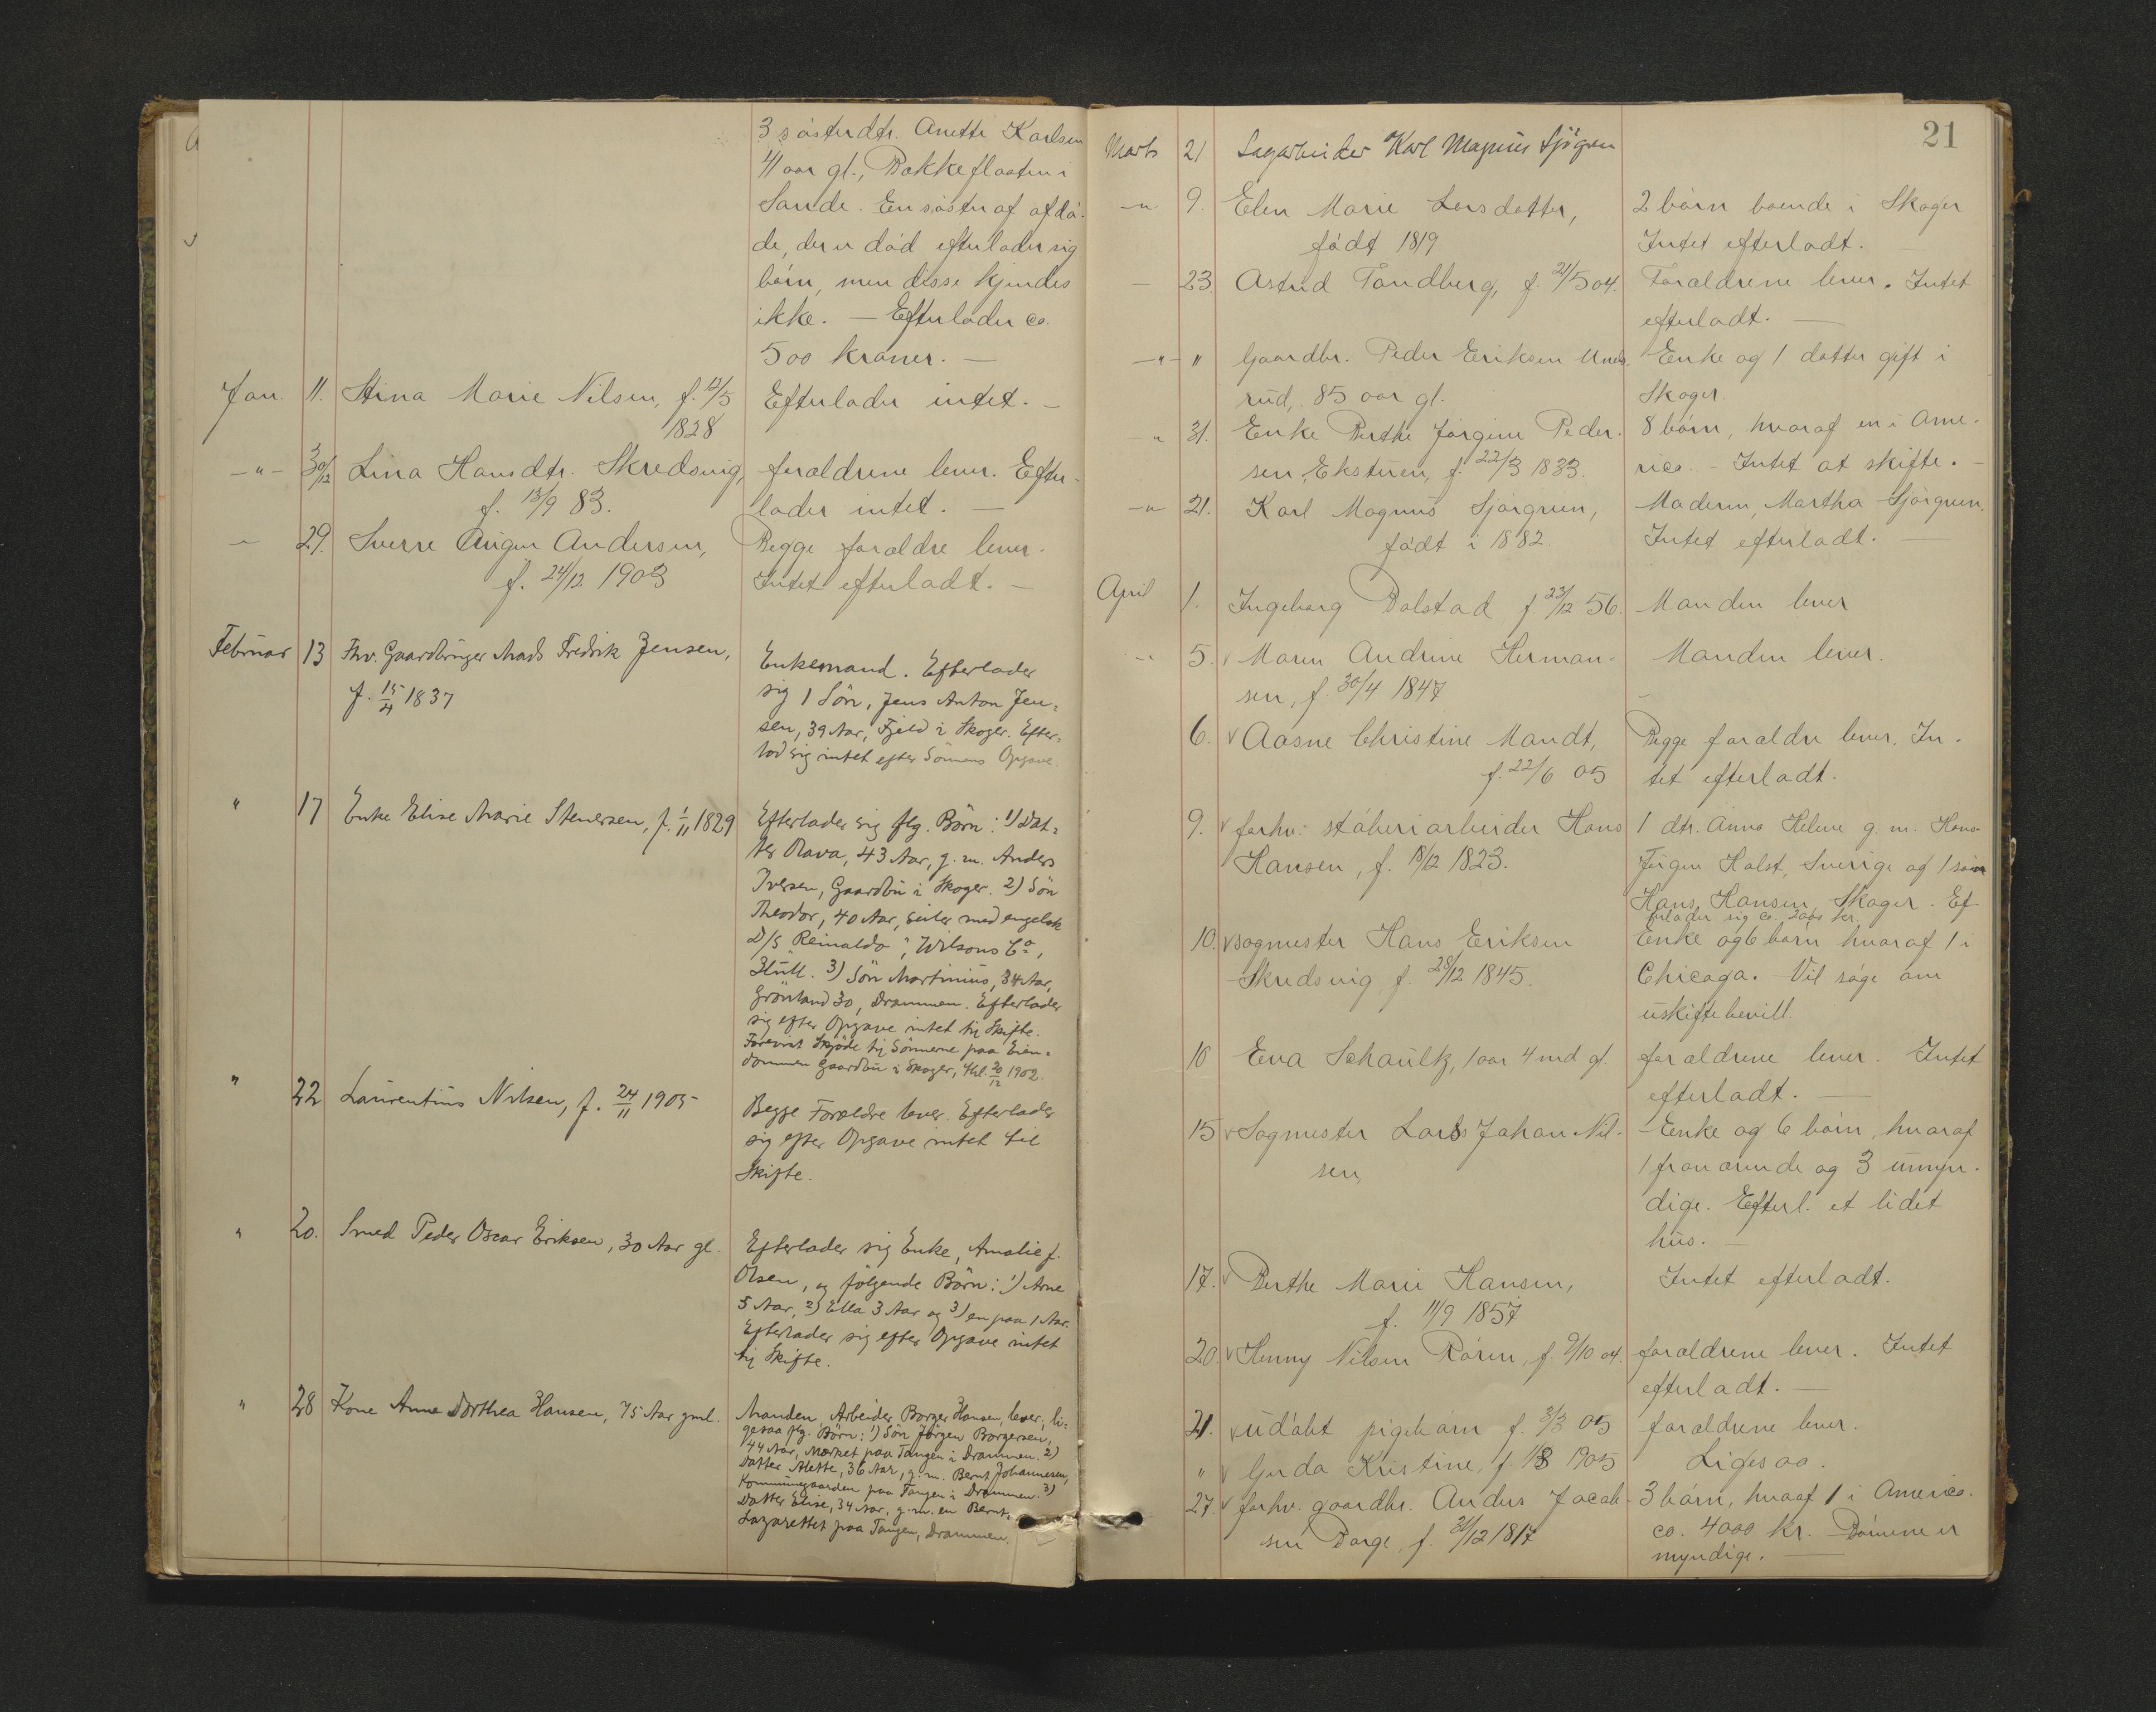 3 søsterdtr. Anette Karlsen
41 aar gl., Bakkeflaaten i
Sande. En søster af afdø-
de, der er død efterlader sig
børn, men disse kjendes
ikke. — Efterlader ca
500 kroner. —
Jan. 11. Stina Marie Nilsen, f. 12/5 Efterlader intet. —
1828
-"- 30/12 Lina Hansdtr. Skredsvig, forældrene lever. Efter-
f. 13/9 83. lader intet. —
- 29. Sverre Andersen, Begge forældre lever.
f. 24/12 1903 Intet efterladt. —
Februar 13 Fhv. Gaardbruger Mads Fredrik Jensen, Enkemand. Efterlader
f. 15/4 1837 sig 1 Søn, Jens Anton Jen=
sen, 39 Aar, Fjeld i Skoger. Efter=
lod sig intet efter Sønnens Opgave.
" 17 Enke Elise Marie Stenersen, f. 1/11 1829 Efterlader sig flg. Børn: 1) Dat=
ter Olava, 43 Aar, g. m. Anders
Iversen, Gaardbu i Skoger. 2) Søn
Theodor, 40 Aar, seiler med engelsk
D/S "Reinaldo", Wilsons Co,
Hull. 3) Søn Martinius, 34 Aar,
Grønland 30, Drammen. Efterlader
sig efter Opgave intet til Skifte.
Forevist Skjøde til Sønnerne paa Eien=
dommen Gaardbu i Skoger, thl. 20/12 1902.
" 22 Laurentius Nilsen, f. 24/11 1905 Begge Forældre lever. Efterlader
sig efter Opgave intet til
Skifte.
" 20. Smed Peder Oscar Eriksen, 30 Aar gl. Efterlader sig Enke, Amalie f.
Olsen, og følgende Børn: 1) Arne
5 Aar, 2) Ella 3 Aar og 3) en paa 1 Aar.
Efterlader sig efter Opgave intet
til Skifte.
" 28 Kone Anne Dorthea Hansen, 75 Aar gml. Manden, Arbeider Borger Hansen, lever, li=
gesaa flg. Børn: 1) Søn Jørgen Borgersen,
44 Aar, Mørket paa Tangen i Drammen. 2)
Datter Alette, 36 Aar, g. m. Bernt Johannesen,
Kommunegaarden paa Tangen i Drammen. 3)
Datter Elise, 34 Aar, g. m. en Bernt,
Lazarettet paa Tangen, Drammen.
21
Marts 21 Sagarbeider Karl Magnus Sjøgren
-"- 9. Elen Marie Larsdatter, 2 børn boende i Skoger
født 1819 Intet efterladt.
- 23. Astrid Tandberg, f. 21/5 04. Forældrene lever. Intet
efterladt. —
-"- " Gaardbr. Peder Eriksen Enke og 1 datter gift i
rud, 85 aar gl. Skoger.
-"- 31. Enke Berthe Jørgine Peder- 8 børn, hvoraf en i Ame-
sen, Eksteren, f. 22/3 1833. rica. - Intet at skifte. -
-"- 21. Karl Magnus Sjørgren, Moderen, Martha Sjørgren.
født i 1882. Intet efterladt. —
April 1. Ingeborg Dalstad f. 23/12 56. Manden lever
-"- 5. v Maren Andrine Herman- Manden lever.
sen, f. 30/4 1847 —
6. v Aasne Christine Mandt, Begge forældre lever. In-
f. 22/6 05 tet efterladt.
9. v forhv. støberiarbeider Hans 1 dtr. Anna Helene g. m. Hans
Hansen, f. 18/12 1823. Jørgen Holst, Sverige og 1 søn
Hans Hansen, Skoger. Ef-
terlader sig ca. 2000 kr.
10. v sagmester Hans Eriksen Enke og 6 børn hvoraf 1 i
Skredsvig f. 28/12 1845. Chicago. Vil søge om
uskiftebevill.
10 Eva Schaultz, 1 aar 4 md gl. forældrene lever. Intet
efterladt. —
15 v Sagmester Lars Johan Nil- Enke og 6 børn, hvoraf
sen, 1 fraværende og 3 umyn-
dige. Efterl. et lidet
hus. —
17. v Berthe Marie Hansen, Intet efterladt.
f. 11/9 1857
20. v Henny Nilsen Røren, f. 9/10 04. forældrene lever. Intet
efterladt. —
21. v udøbt pigebarn f. 3/3 05 forældrene lever.
" v Gerda Kristine, f. 1905 Ligesaa.
27. v forhv. gaardbr. Anders Jacob- 3 børn, hvoaf 1 i America.
sen Dorge, f. 31/12 1817 ca. 4000 kr. Børnene er
myndige. —